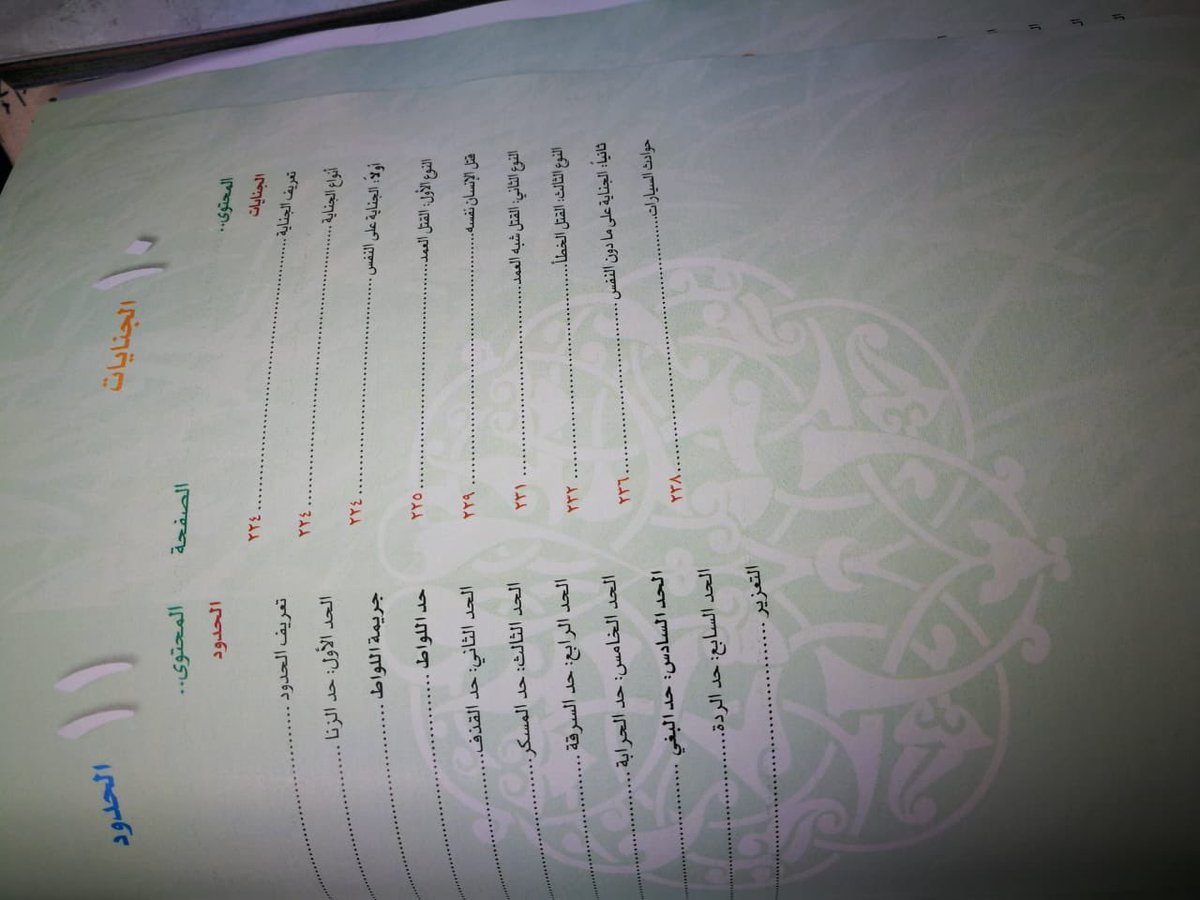 ١٠
الجنايات
المحتوى.. الصفحة
الجنايات
تعريف الجناية ........ ٢٢٤
أنواع الجناية ........ ٢٢٤
أولاً: الجناية على النفس ........ ٢٢٤
النوع الأول: القتل العمد ........ ٢٢٥
قتل الإنسان نفسه ........ ٢٢٩
النوع الثاني: القتل شبه العمد ........ ٢٣١
النوع الثالث: القتل الخطأ ........ ٢٣٢
ثانياً: الجناية على ما دون النفس ........ ٢٣٦
حوادث السيارات ........ ٢٣٨
١١
الحدود
المحتوى..
الحدود
تعريف الحدود ........
الحد الأول: حد الزنا ........
جريمة اللواط ........
حد اللواط ........
الحد الثاني: حد القذف ........
الحد الثالث: حد المسكر ........
الحد الرابع: حد السرقة ........
الحد الخامس: حد الحرابة ........
الحد السادس: حد البغي ........
الحد السابع: حد الردة ........
التعزير ........